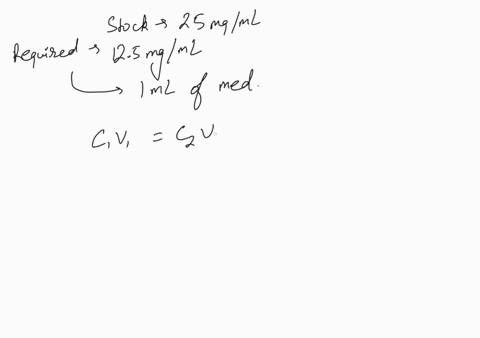 Stock → 25 mg/mL
Required → 12.5 mg/mL
→ 1 mL of med.
C₁V₁ = C₂V